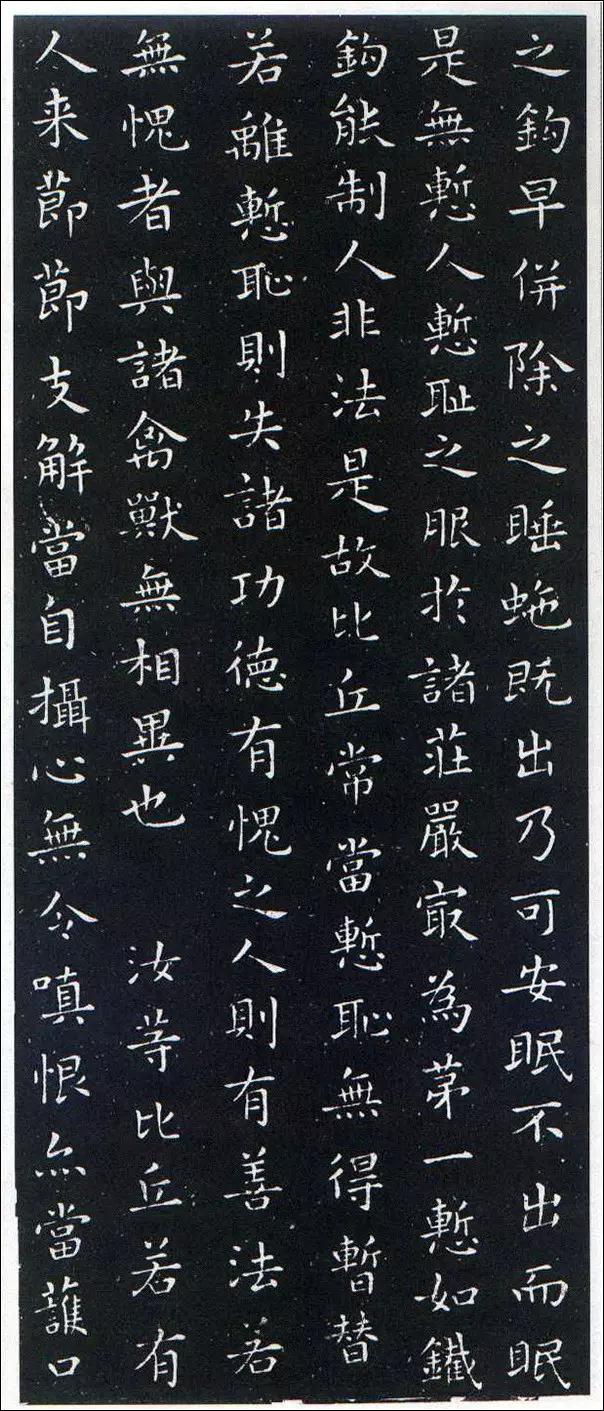 之鈎早併除之睡虵既出乃可安眠不出而眠
是無慙人慙耻之服扵諸莊嚴㝡為苐一慙如鐵
鈎能制人非法是故比丘常當慙恥無得暫替
若離慙恥則失諸功德有愧之人則有善法若
無愧者與諸禽獸無相異也 汝䓁比丘若有
人来莭莭支解當自攝心無令嗔恨亦當護口